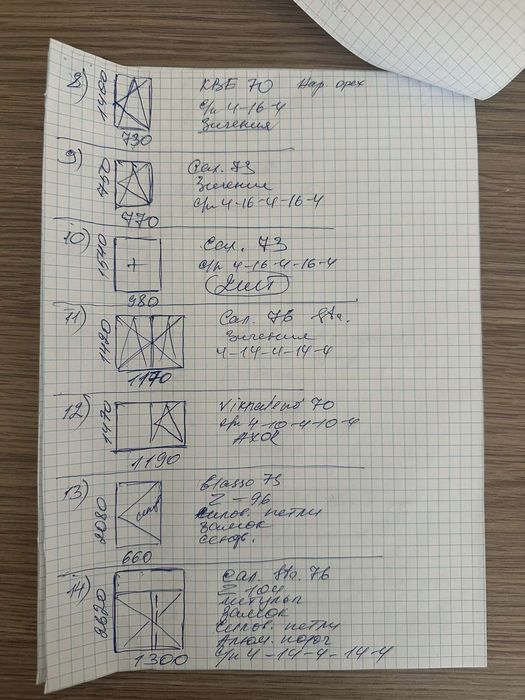 8) 1400 730 KBE 70 Нар. орех
с/п 4-16-4
Зичения
9) 750 770 Сал. 73
Зичения
с/п 4-16-4-16-4
10) 1540 980 Сал. 73
с/п 4-16-4-16-4
2 шт
11) 1420 1170 Сал. 76
Зичения
4-14-4-14-4
12) 1470 1190 70
с/п 4-10-4-10-4
AXOR
13) 2080 660 сенд. Glasso 75
Z-96
силов. петли
замок
сендв.
14) 2620 1300 Сал. 76
Z 104
штульп
замок
силов. петли
Алюм. порог
с/п 4-14-4-14-4